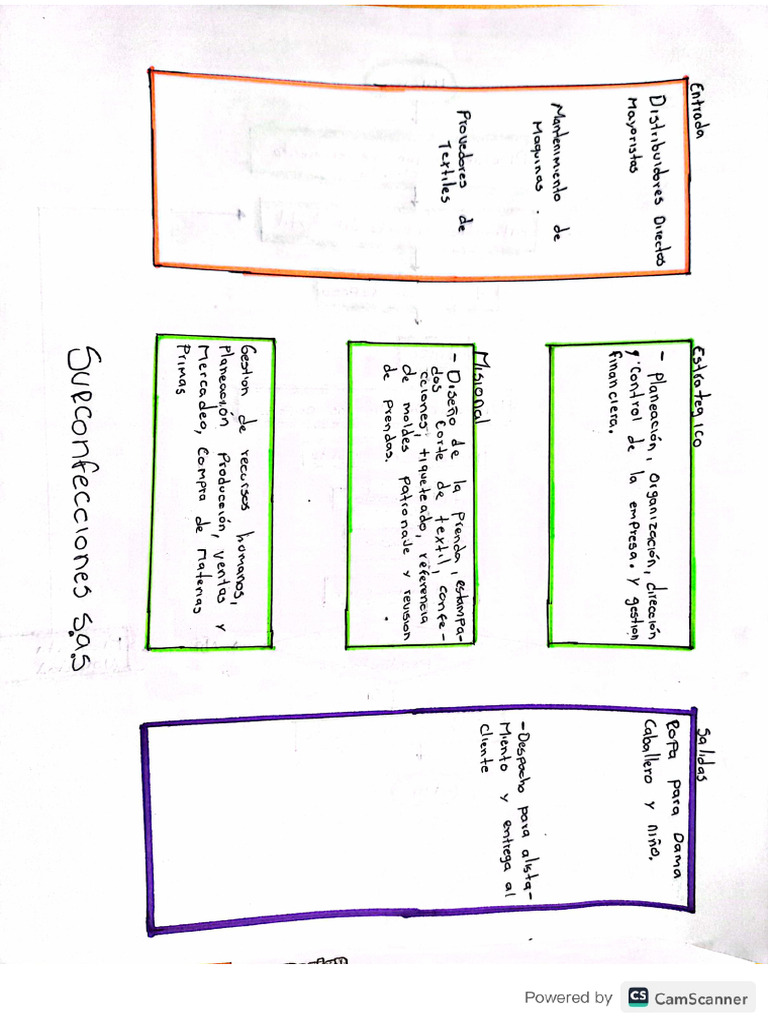 Entrada
Distribuidores Directos
Mayoristas
Mantenimiento de
Maquinas.
Provedores de
Textiles
Estrategico
- Planeación, organización, dirección
y control de la empresa. y gestion
financiera.
Misional
- Diseño de la prenda, estampa-
dos corte de textil, confe-
cciones, tiqueteado, referencia
de moldes patronaje y revision
de prendas.
Gestion de recursos humanos,
planeación Producción, ventas y
Mercadeo, Compra de Materias
Primas
Salidas
Ropa para Dama
Caballero y niño.
- Despacho para alista-
Miento y entrega al
cliente
Surconfecciones s.a.s
Powered by CS CamScanner